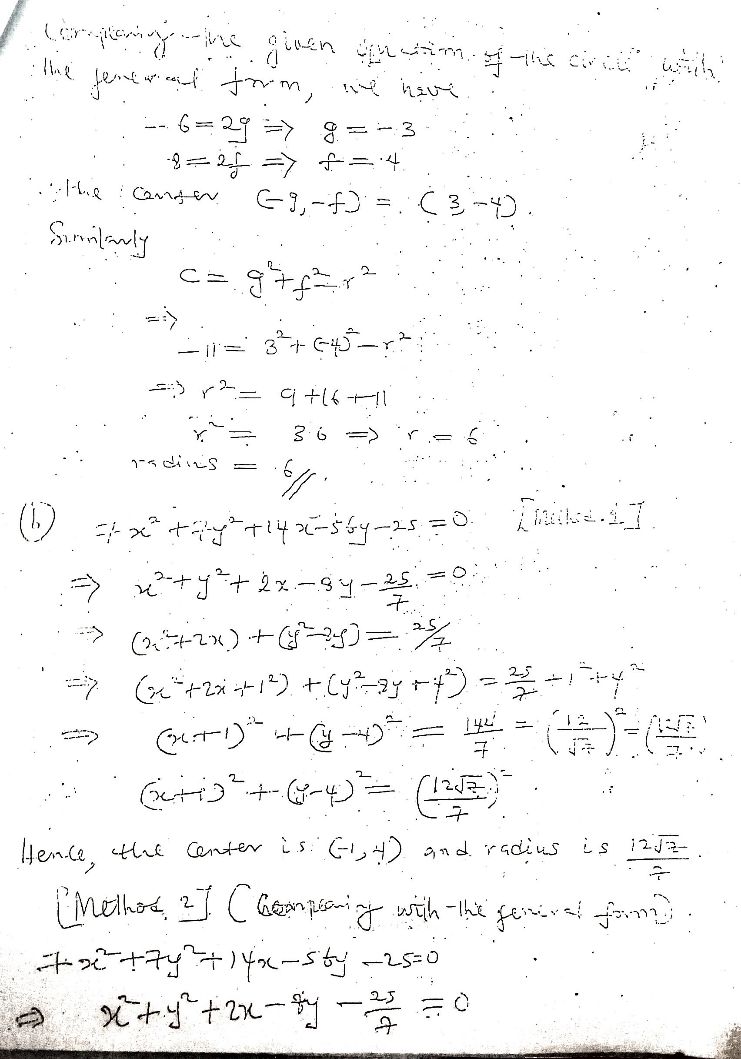 Comparing the given equation of the circle with
the general form, we have
-6 = 2g => g = -3
8 = 2f => f = 4
∴ the center (-g, -f) = (3, -4).
Similarly
c = g² + f² - r²
=>
-11 = 3² + (-4)² - r²
=> r² = 9 + 16 + 11
r² = 36 => r = 6
radius = 6//
(b) 7x² + 7y² + 14x - 56y - 25 = 0 [Method 1]
=> x² + y² + 2x - 8y - 25/7 = 0
=> (x² + 2x) + (y² - 8y) = 25/7
=> (x² + 2x + 1²) + (y² - 8y + 4²) = 25/7 + 1² + 4²
=> (x+1)² + (y-4)² = 144/7 = (12/√7)² = (12√7/7)²
∴ (x+1)² + (y-4)² = (12√7/7)²
Hence, the center is (-1, 4) and radius is 12√7/7.
[Method 2] (Comparing with the general form).
7x² + 7y² + 14x - 56y - 25 = 0
=> x² + y² + 2x - 8y - 25/7 = 0